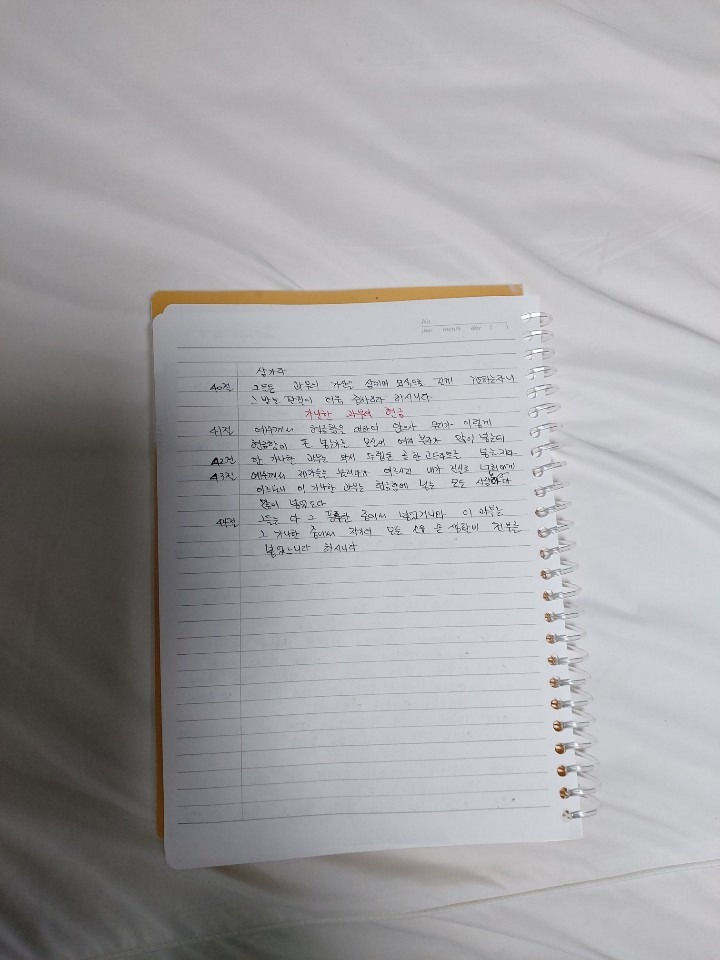 삼가라
40절 그들은 과부의 가산을 삼키며 외식으로 길게 기도하는자니
그 받는 판결이 더욱 중하리라 하시니라
가난한 과부의 헌금
41절 예수께서 헌금함을 대하여 앉으사 무리가 어떻게
헌금함에 돈 넣는가를 보실새 여러 부자는 많이 넣는데
42절 한 가난한 과부는 와서 두 렙돈 곧 한 고드란트를 넣는지라
43절 예수께서 제자들을 불러다가 이르시되 내가 진실로 너희에게
이르노니 이 가난한 과부는 헌금함에 넣는 모든 사람보다
많이 넣었도다
44절 그들은 다 그 풍족한 중에서 넣었거니와 이 과부는
그 가난한 중에서 자기의 모든 소유 곧 생활비 전부를
넣었느니라 하시니라